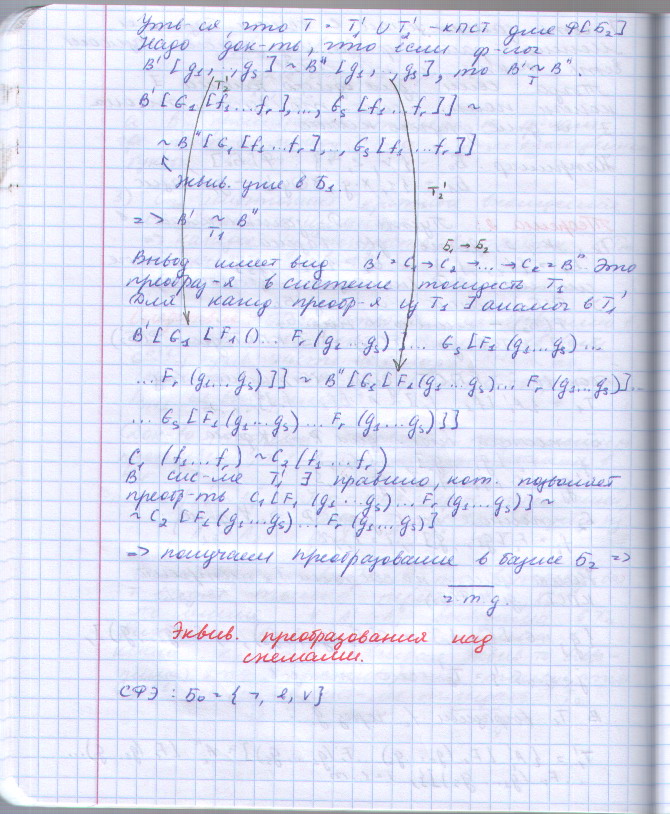 Утв-ся, что T = T₁' ∪ T₂' - КПСТ для Ф[Б₂]
Надо док-ть, что если ф-лы
B' [g₁,..,gₛ] ~ B'' [g₁,..,gₛ], то B' ~ B''.
T
T₂'
B' [G₁ [f₁...fᵣ],..., Gₛ [f₁...fᵣ]] ~
~ B'' [G₁ [f₁...fᵣ],.., Gₛ [f₁...fᵣ]]
T₂'
эквив. уже в Б₁.
=> B' ~ B''
T₁
Б₁ → Б₂
Вывод имеет вид B' = C₁ → C₂ → ... → Cₖ = B'' Это
преобраз-я в системе тождеств T₁
Для кажд преобр-я из T₁ ∃ аналог в T₁'
B' [G₁ [F₁()... Fᵣ (g₁...gₛ)... Gₛ [F₁ (g₁...gₛ)...
... Fᵣ (g₁...gₛ)]] ~ B'' [G₁ [F₁ (g₁...gₛ)... Fᵣ (g₁...gₛ)]...
... Gₛ [F₁ (g₁...gₛ) ... Fᵣ (g₁...gₛ)]]
C₁ (f₁...fᵣ) ~ C₂ (f₁...fᵣ)
В сис-ме T₁' ∃ правило, кот. позволяет
преобр-ть C₁ [F₁ (g₁...gₛ)... Fᵣ (g₁...gₛ)] ~
~ C₂ [F₁ (g₁...gₛ)... Fᵣ (g₁...gₛ)]
=> получаем преобразование в базисе Б₂ =>
ч.т.д.
Эквив. преобразования над
схемами.
СФЭ : Б₀ = {¬, &, ∨}